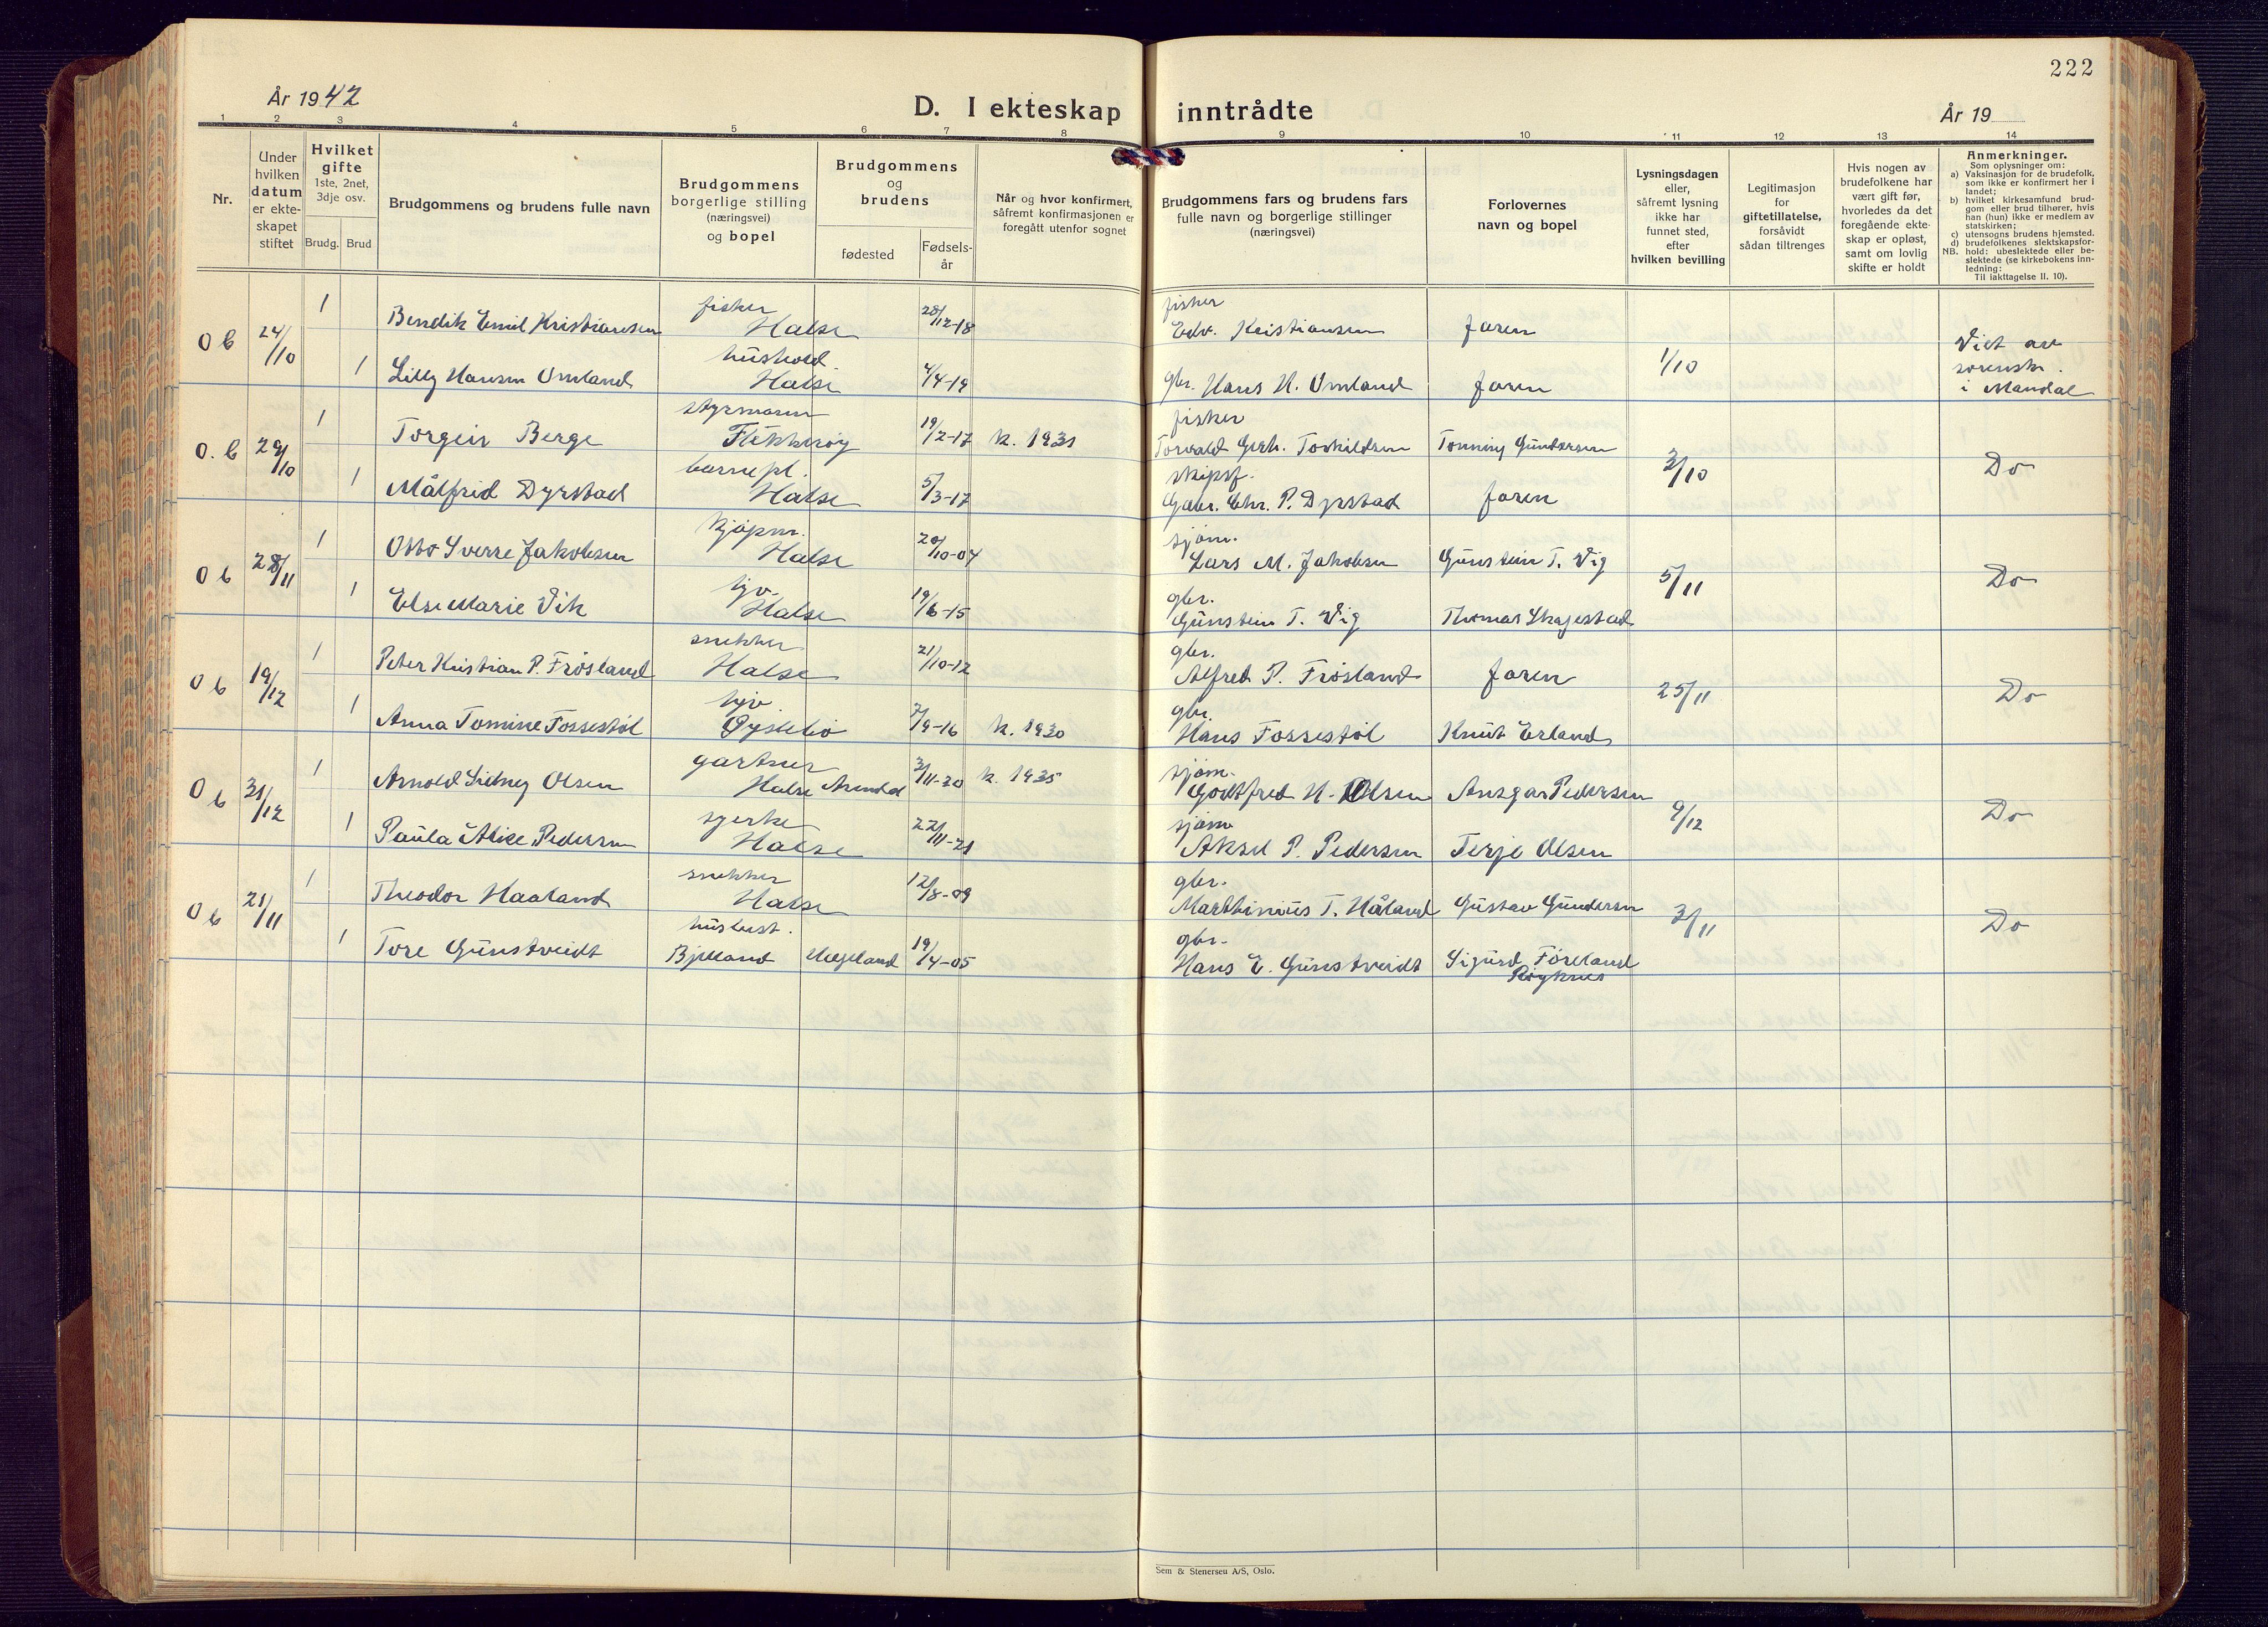 222
År 1942
D. I ekteskap inntrådte
År 19
1 2 3 4 5 6 7 8 9 10 11 12 13 14
Nr.
Under hvilken datum er ekte-skapet stiftet
Hvilket gifte
1ste, 2net, 3dje osv.
Brudg. Brud
Brudgommens og brudens fulle navn
Brudgommens borgerlige stilling (næringsvei) og bopel
Brudgommens og brudens
fødested
Fødsels-år
Når og hvor konfirmert, såfremt konfirmasjonen er foregått utenfor sognet
Brudgommens fars og brudens fars fulle navn og borgerlige stillinger (næringsvei)
Forlovernes navn og bopel
Lysningsdagen eller, såfremt lysning ikke har funnet sted, efter hvilken bevilling
Legitimasjon for giftetillatelse, forsåvidt sådan tiltrenges
Hvis nogen av brudefolkene har vært gift før, hvorledes da det foregående ekte-skap er opløst, samt om lovlig skifte er holdt
Anmerkninger.
Som oplysninger om:
a) Vaksinasjon for de brudefolk, som ikke er konfirmert her i landet;
b) hvilket kirkesamfund brud-gom eller brud tilhører, hvis han (hun) ikke er medlem av statskirken;
c) utensogns brudens hjemsted.
d) brudefolkenes slektskapsfor-
NB. hold: ubeslektede eller be-slektede (se kirkebokens inn-ledning:
Til iakttagelse II. 10).
O b 24/10 1 Bendik Emil Kristiansen fisker Halse 28/12-18 fisker Edv. Kristiansen faren 1/10 Viet av sorenskr. i Mandal
1 Lilly Hansen Omland hushold. Halse 4/4-19 gbr. Hans H. Omland faren
O. b 29/10 1 Torgeir Berge styrmann Flekkerøy 19/2-17 k. 1931 fisker Torvald Gerh. Torkildsen Tonning Gundersen 3/10 Do
1 Målfrid Dyrstad barnepl. Halse 5/3-17 skipsf. Gabr. Chr. P. Dyrstad faren
O b 28/11 1 Otto Sverre Jakobsen kjøpm. Halse 20/10-04 sjøm. Lars M. Jakobsen Gunstein T. Vig 5/11 Do
1 Else Marie Vik hjv. Halse 19/6-15 gbr. Gunstein T. Vig Thomas Skagestad
O b 19/12 1 Peter Kristian P. Frøsland snekker Halse 21/10-12 gbr. Alfred P. Frøsland faren 25/11 Do
1 Anna Tomine Fossestøl hjv. Øyslebø 7/9-16 k. 1930 gbr. Hans Fossestøl Knut Erland
O b 31/12 1 Arnold Sidney Olsen gartner Halse Arendal 3/11-20 k. 1935 sjøm. Godtfred H. Olsen Ansgar Pedersen 9/12 Do
1 Paula Alice Pedersen syerske Halse 22/11-21 sjøm Aksel P. Pedersen Terje Olsen
O b 21/11 1 Theodor Haaland snekker Halse 12/8-09 gbr. Marthinius T. Håland Gustav Gundersen 3/11 Do
1 Tore Gunstveidt husbest. Bjelland Hegeland 19/4-05 gbr. Hans E. Gunstveidt Sigurd Føreland
Sem & Stenersen A/S, Oslo.